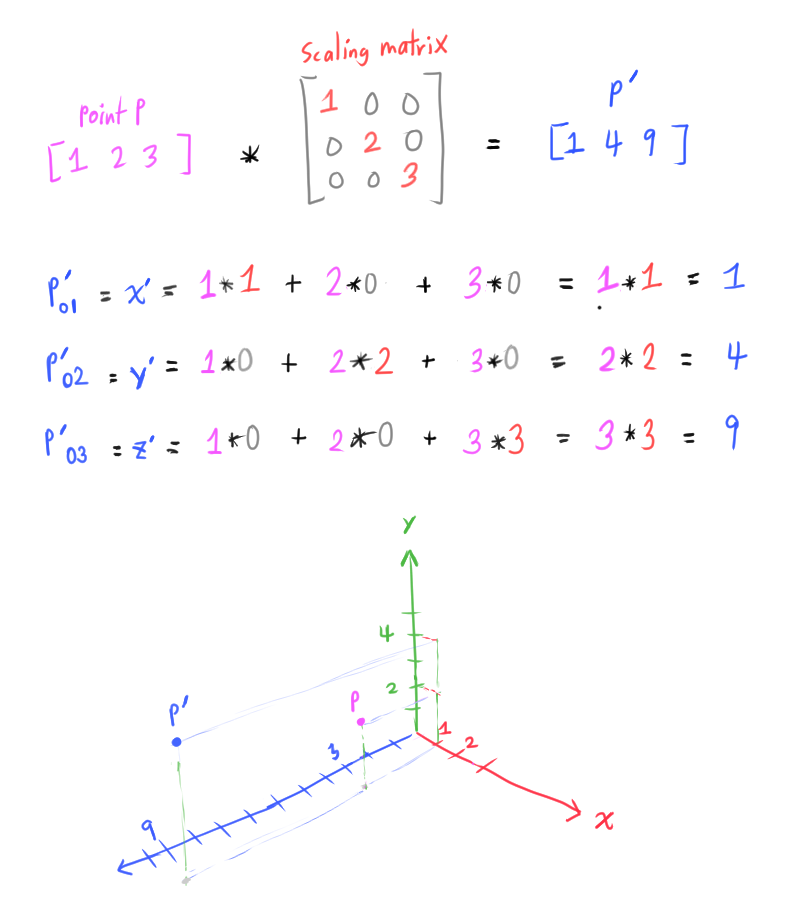 scaling matrix
point P
P'
[1 2 3] * [1 0 0
0 2 0
0 0 3] = [1 4 9]
P'01 = x' = 1*1 + 2*0 + 3*0 = 1*1 = 1
P'02 = y' = 1*0 + 2*2 + 3*0 = 2*2 = 4
P'03 = z' = 1*0 + 2*0 + 3*3 = 3*3 = 9
Y
4
2
P'
P
3
1
2
9
X